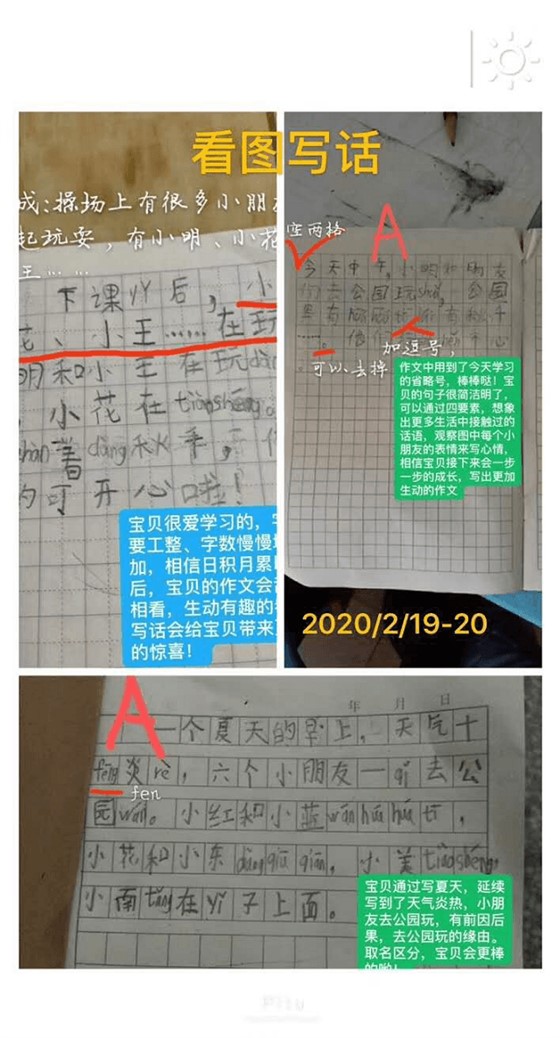 看图写话
成:操场上有很多小朋友
起玩耍,有小明、小花
王……
下课以后,小
花、小王……在玩
明和小王在玩dàng
,小花在tiàoshéng。
着dāng秋千,
的可开心啦!
宝贝很爱学习的,字
要工整、字数慢慢增
加,相信日积月累
后,宝贝的作文会
相看,生动有趣的看
写话会给宝贝带来
的惊喜!
空两格
A
今天中午,小明和朋友
们去公园玩shuǎ,公园
里有
加逗号,
可以去掉
作文中用到了今天学习
的省略号,棒棒哒!宝
贝的句子很简洁明了,
可以通过四要素,想象
出更多生活中接触过的
话语,观察图中每个小
朋友的表情来写心情,
相信宝贝接下来会一步
一步的成长,写出更加
生动的作文
2020/2/19-20
A
年 月 日
一个夏天的早上,天气十
fēng炎rè,六个小朋友一qǐ去公
fen
园wán。小红和小蓝wán huá huá tī,
小花和小东dàng qiū qiān,小美tiàoshéng,
小南tǎng在yǐ子上面。
宝贝通过写夏天,延续
写到了天气炎热,小朋
友去公园玩,有前因后
果,去公园玩的缘由。
取名区分,宝贝会更棒
的哟!
Pitu